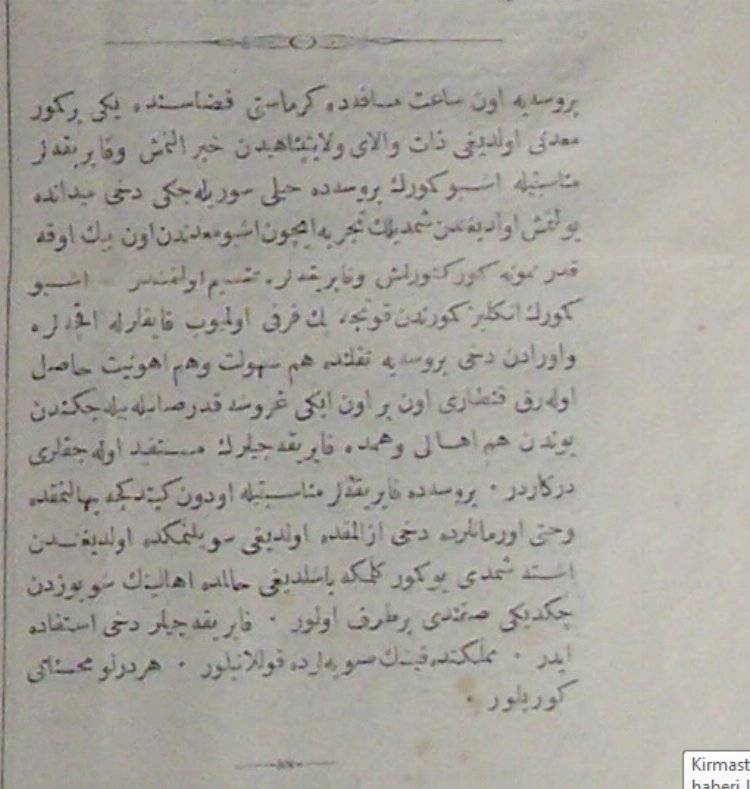 بروسه‌یه اون ساعت مسافه‌ده کرماستی قضاسنده یکی بر کمور
معدنی اولدیغی ذات والای ولایتپناهیدن خبر النمش وفابریقه‌لر
مناسبتیله اشبو کمورك بروسه‌ده خیلی سوریله‌جکی دخی میدانده
بولنمش اولدیغندن شمدیلك تجربه ایچون اشبو معدندن اون بیك اوقه
قدر نمونه کور کتورلمش وفابریقه‌لره تقسیم اولنمشدر اشبو
کمورك انکلیز کمورندن قوتجه پك فرقی اولمیوب قایقلرله
واورادن دخی بروسه‌یه نقلنده هم سهولت وهم اهونیت حاصل
اوله‌رق قنطاری اون بر اون ایکی غروشه قدر صاتیله‌بیله‌جکندن
بوندن هم اهالی وهمده فابریقه‌جیلرك مستفید اوله‌جقلری
درکاردر . بروسه‌ده فابریقه‌لر مناسبتیله اودون کیتدکجه بهالنمقده
وحتی اورمانلرده دخی ازالمقده اولدیغی سویلنمکده اولدیغندن
اشته شمدی بو کمور کلمکه باشلدیغی حالده اهالینك شو یوزدن
چکدیکی صقندی بر طرف اولور . فابریقه‌جیلر دخی استفاده
ایدر . مملکتده قیشك صوبه‌لرده قوللانیلور . هر درلو محسناتی
کوریلور .
Kirmast
haberi